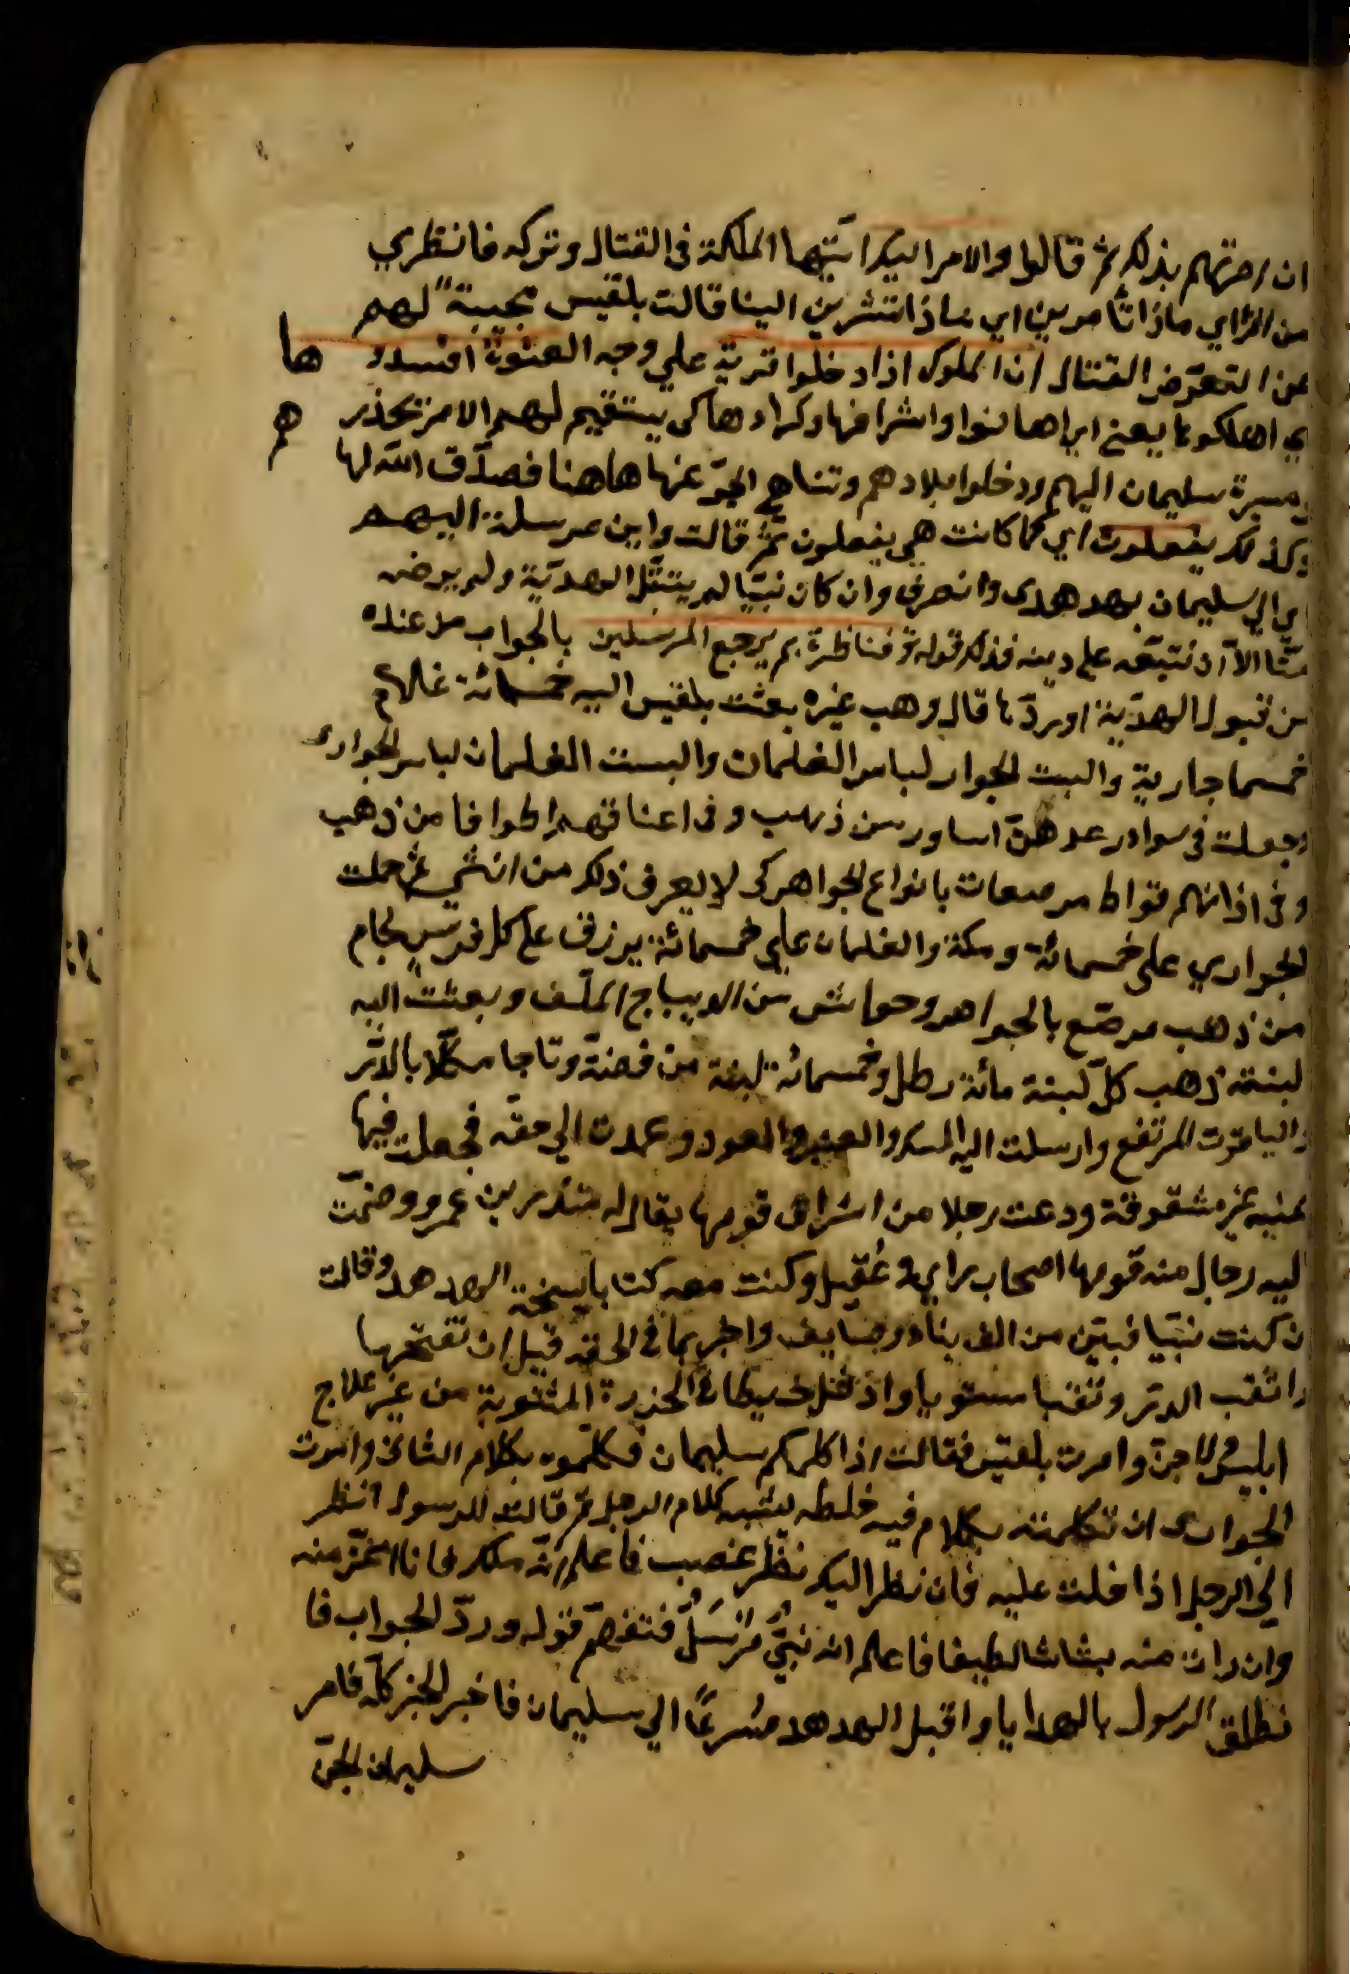 ان امرتهم بذلك ثم قالوا والامر اليك ايتها الملكة فى القتال وتركه فانظري
من الراي ماذا تأمرين اي ماذا تشرين الينا قالت بلقيس مجيبة لهم
عن التعرّض القتال ان الملوك اذا دخلوا قرية علي وجه العنوة افسدو ها
اي اهلكوها يعنى اهانوا واشرافها وكراءها كى يستقيم لهم الامر تحذر هم
مسيرة سليمان اليهم ودخلوا بلادهم وتناهى الخبر عنها هاهنا فصدّق الله لها
وكذلك يفعلون اي كما كانت هي يفعلون ثمّ قالت واني مرسلة اليهم
اي الي سليمان بهدهدى وانصرفي وان كان نبيّا لم يتقبّل الهديّة ولم يرضه
منّا الاّ ان نتبعه على دينه فذلك قوله تع فناظرة بم يرجع المرسلين بالجواب من عنده
من قبول الهديّة او ردّها قال وهب غيره بعثت بلقيس اليه خمسمائة غلام
خمسما جارية والبت الجوار لباس الغلمان والبست الغلمان لباس الجوارى
وجعلت فى سواعدهنّ اساور من ذهب وفى اعناقهم اطواقا من ذهب
وفى اذانهم قواط مرصعات بانواع الجواهر كى لا يعرف ذلك من انثي ثم حملت
الجواري على خمسمائة ومكة والغلمان علي خمسمائة برزق على كل فرس لجام
من ذهب مرصّع بالجواهر وحواش من الديباج الملّف وبعثت اليه
لبنة ذهب كلّ لبنة مائة رطل وخمسمائة لبنة من فضة وتاجا مكلّلا بالدّر
والياقوت المرتفع وارسلت اليه المسك والعنبر والعود وعمدت الي حقه فجعلت فيها
ثمنيه غير مثقوفة ودعت رجلا من اشراف قومها يقال له منذر بن عمرو وضمّت
اليه رجال منه قومها اصحاب راي وعُقيل وكنت معه كتابا بنسخة الهدهد وقالت
ان كنت نبيّا فبيّن من الف بناء ورصايف واخبر بما فى الحقه قبل ان تفتحها
واثقب الدّر وثقبا مستويا وادخل خيطا فى الخزرة المثقوبة من غير علاج
ابليس ولا جن وامرت بلقيس فقالت اذا كلمكم سليمان فكلّموه بكلام الثانى وامرت
الجوارى ان تكلمنه بكلام فيه غلظه يشبه كلام الرجل ثم قالت للرسول انظر
الي الرجل اذا خلت عليه فان نظر اليك نظر غضب فاعلم انّه ملك فانا اعزّ منه
وان رات منه بشاشا لطيفا فاعلم انه نبيّ مرْسَلٌ فتفهّم قوله وردّ الجواب فا
نطلق الرسول بالهدايا واقبل الهدهد مسرعًا الي سليمان فاخبر الخبر كلّه فامر
سليمان الجنّ